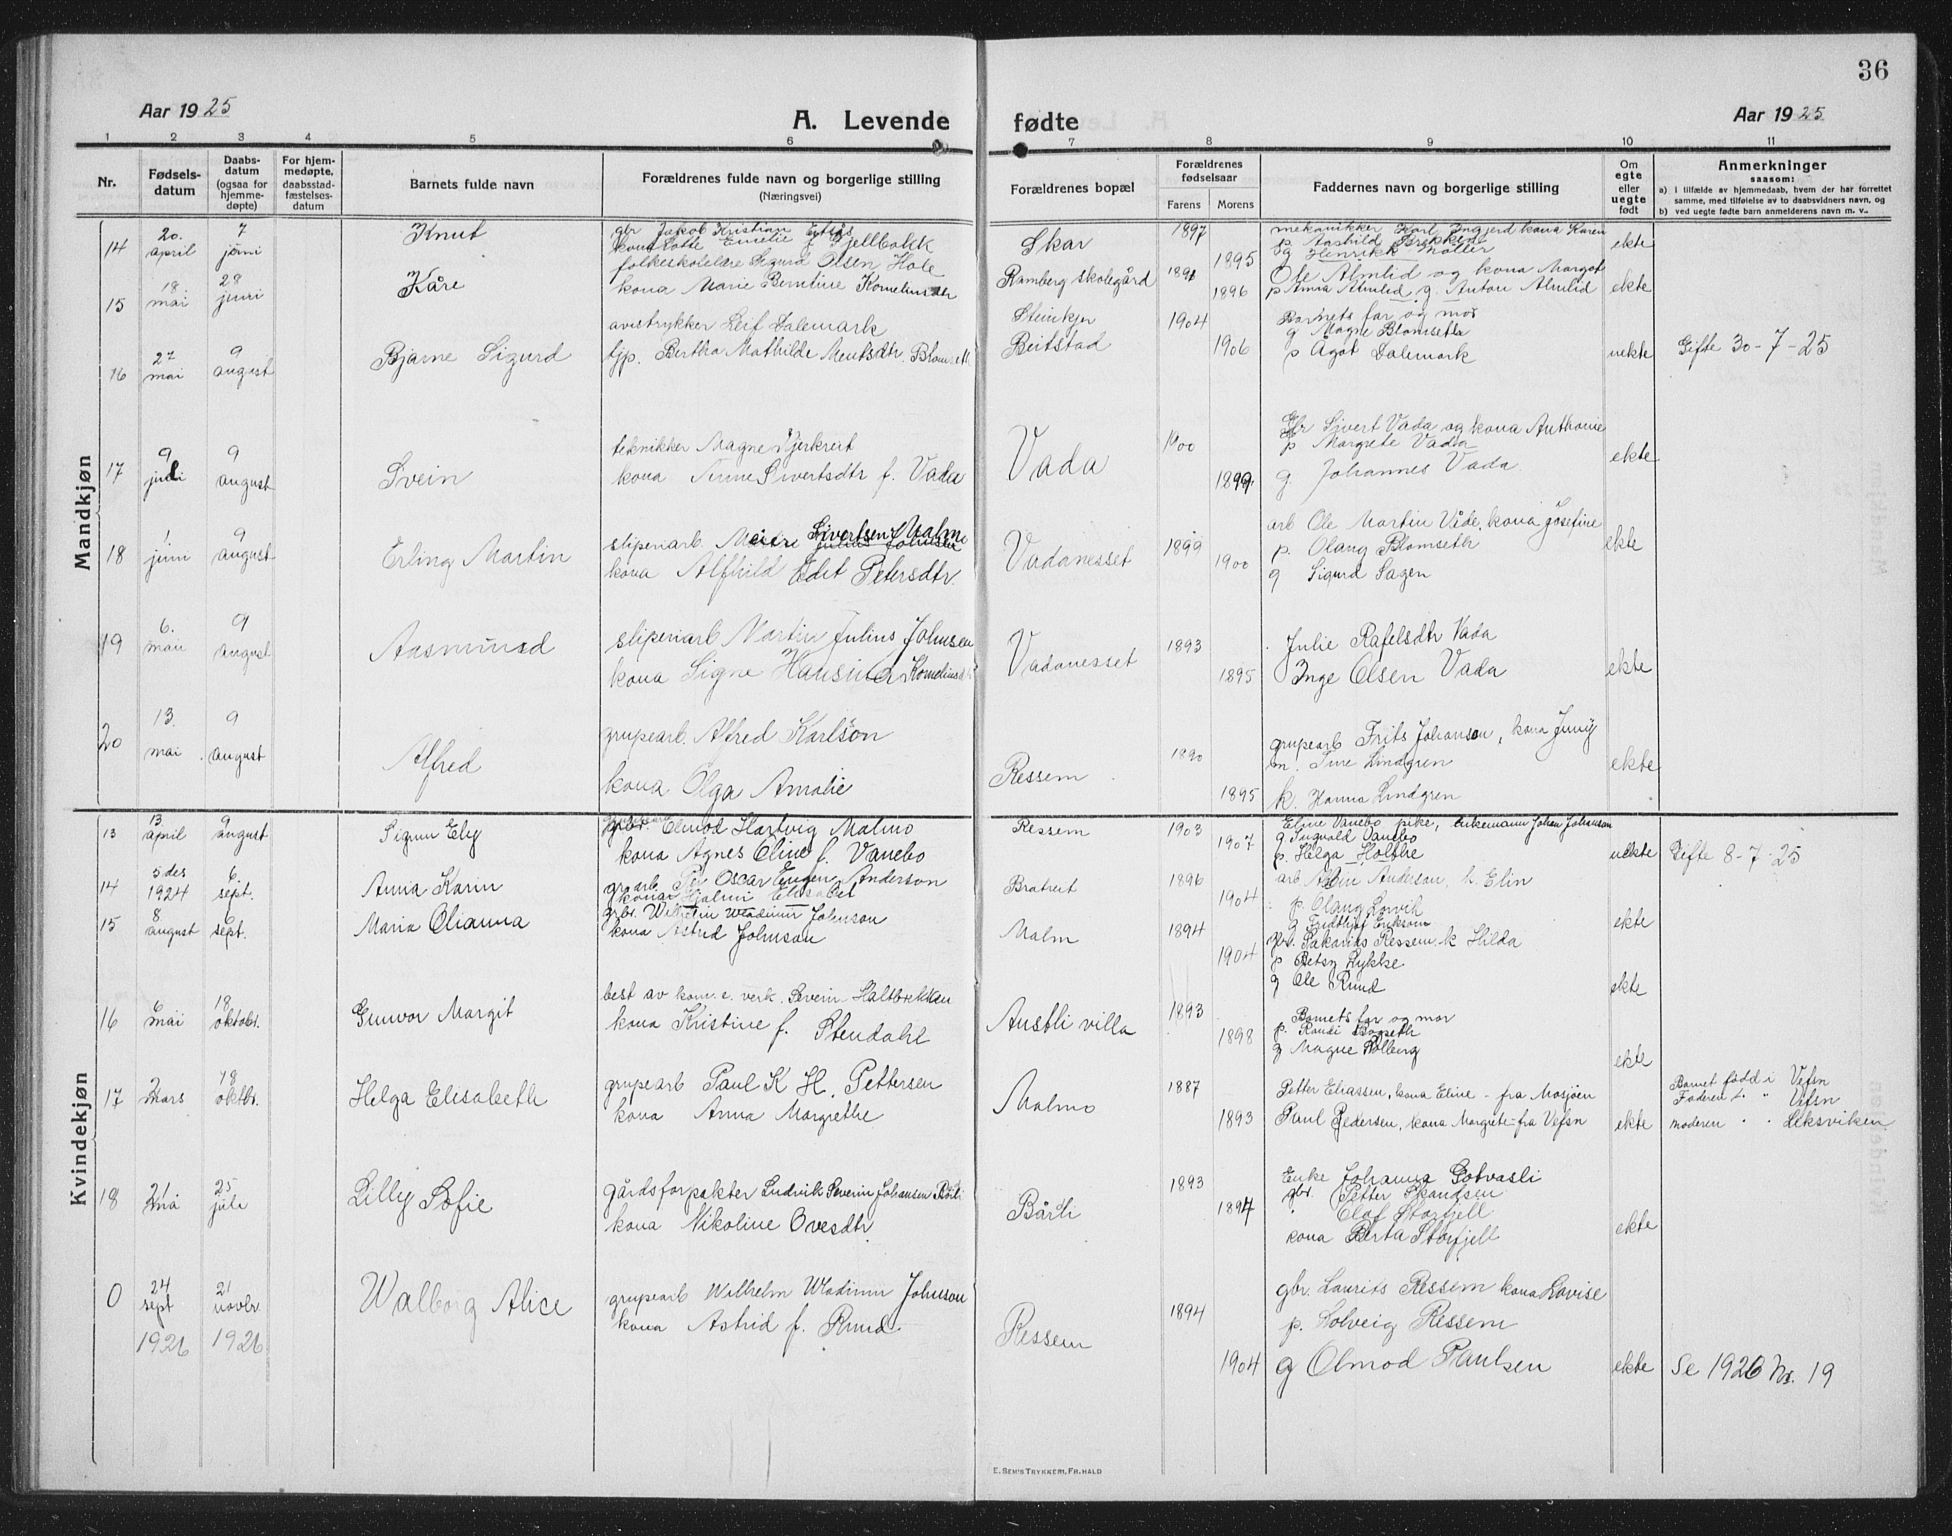 36
Aar 1925
A. Levende fødte
Aar 1925
1 2 3 4 5 6 7 8 9 10 11
Nr.
Fødsels-
datum
Daabs-
datum
(ogsaa for
hjemme-
døpte)
For hjem-
medøpte,
daabsstad-
fæstelses-
datum
Barnets fulde navn
Forældrenes fulde navn og borgerlige stilling
(Næringsvei)
Forældrenes bopæl
Forældrenes
fødselsaar
Farens Morens
Faddernes navn og borgerlige stilling
Om
egte
eller
uegte
født
Anmerkninger
saasom:
a) i tilfælde av hjemmedaab, hvem der har forrettet
samme, med tilføielse av to daabsvidners navn, og
b) ved uegte fødte barn anmelderens navn m. v.
Mandkjøn
14
20. april
7 juni
Knut
gbr Jakob Kristian
kona Lotte Emelie f Fjellbakk
Skar
1897
1895
mekanikker Karl Ingjerd kona Karen
p Aashild Brekken
g Henrikk Møller
ekte
15
18 mai
28 juni
Kåre
folkeskolelære Sigurd Olsen Hole
kona Marie Berntine Kornelius dtr
Ramberg skolegård
1891
1896
Ole Almlid og kona Margot
p Anna Almlid g. Anton Almlid
ekte
16
27 mai
9 august
Bjarne Sigurd
avistrykker Leif Dalemark
tjp. Bertha Mathilde Mentsdtr. Blomseth
Steinkjer
Beitstad
1904
1906
Barnets far og mor
g Magne Blomseth
p Agot Dalemark
uekte
Gifte 30-7-25
17
9 juli
9 august
Svein
teknikker Magne Bjerkreit
kona Anne Sivertsdtr f. Vada
Vada
1900
1899
Gbr Sivert Vada og kona Anthonie
p Margrete Vada
g. Johannes Vada
ekte
18
1 juni
9 august
Erling Martin
sliperiarb Meier Sivertsen Malmo
kona Alfhild Edit Petersdtr.
Vadanesset
1899
1900
arb Ole Martin Våde, kona Josefine
p. Olaug Blomseth
g Sigurd Sagen
ekte
19
6. mai
9 august
Aasmund
sliperiarb Martin Julius Johnsen
kona Signe Hansine Korneliusdtr
Vadanesset
1893
1895
Julie Rafelsdtr Vada
Inge Olsen Vada
ekte
20
13. mai
9 august
Alfred
grupearb. Alfred Karlson
kona Olga Amalie
Ressem
1890
1895
grupearb Frits Johanson, kona Jenny
m. Ture Lindgren
k. Hanna Lindgren
ekte
Kvindekjøn
13
13 april
9 august
Sigrun Ely
gbr. Elmod Hartvig Malmo
kona Agnes Eline f. Vanebo
Ressem
1903
1907
Eline Vanebo pike, enkemann Johan Johnson
g Ingvald Vanebo
p. Helga Holthe
uekte
Gifte 8-7-25
14
5 des 1924
6 sept.
Anna Karin
gr.arb Per Oscar Eugen Anderson
kona Hjalmi Elisabet
Bratreit
1896
1904
arb Albin Anderson, k. Elin
p. Olaug Lorvik
g Fridtljof Erikson
ekte
15
8 august
6 sept.
Maria Olianna
grbr. Wilhelm Wladimir Johnson
kona Astrid Johnson
Malm
1894
1904
gbr. Sakarias Ressem k Hilda
p Betsy Lykke
g Ole Rund
ekte
16
6 mai
18 oktobr.
Gunvor Margit
best av kom. e. verk. Severin Haltbrekken
kona Kristine f. Stendahl
Austli villa
1893
1898
Barnets far og mor
p. Randi Bogseth
g Magne Solberg
ekte
17
2 mars
18 oktbr.
Helga Elisabeth
grupearb Paul K H. Pettersen
kona Anna Margrethe
Malmo
1887
1893
Petter Eliassen, kona Eline - fra Mosjøen
Paul Pedersen, kona Margrete - fra Vefsn
ekte
Barnet født i Vefsn
Faderen " " Vefsn
moderen " " Leksviken
18
21 mai
25 jule
Lilly Sofie
gårdsforpakter Ludvik Severin Johansen Bårli
kona Nikoline Ovesdtr
Bårli
1893
1894
Enke Johanna Gotvasli
gbr. Petter Skandsen
" Olaf Storfjell
kona Berta Storfjell
ekte
0
24 sept 1926
21 novbr 1926
Walborg Alice
grupearb Wilhelm Wladimir Johnson
kona Astrid f. Rund
Ressem
1894
1904
gbr. Laurits Ressem kona Lovise
p. Solveig Ressem
g Olmod Paulsen
ekte
Se 1926 Nr. 19
E. Sem's Trykkeri, Fr.hald